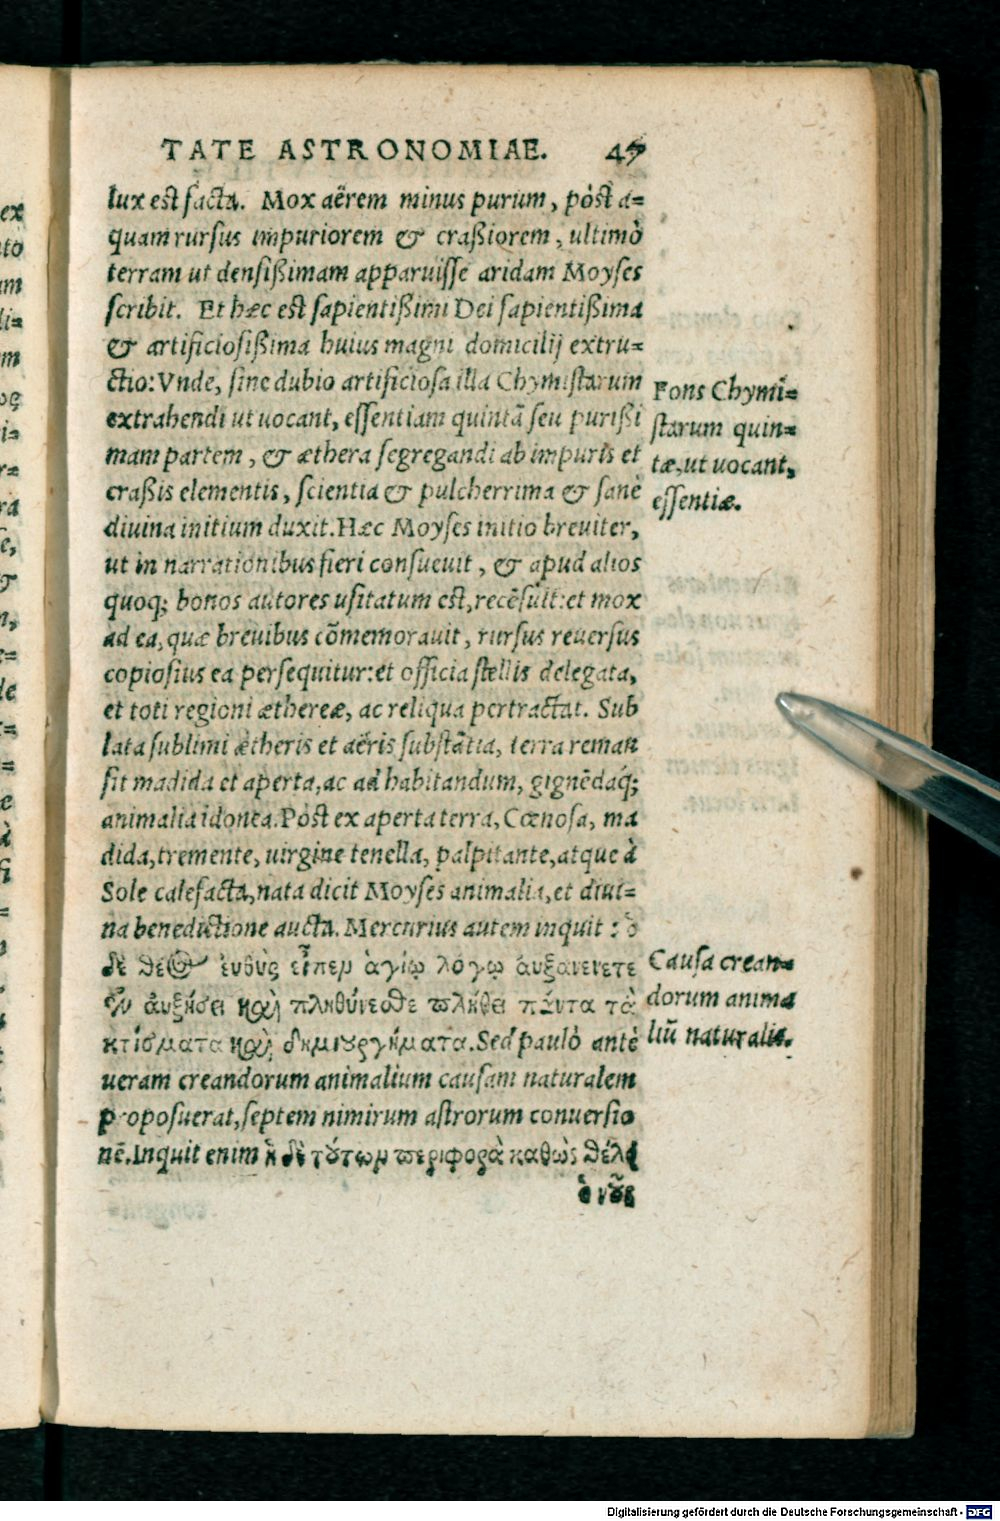 TATE ASTRONOMIAE. 47
lux est facta. Mox aërem minus purum, pòst a=
quam rursus impuriorem & craßiorem, ultimò
terram ut densißimam apparuisse aridam Moyses
scribit. Et hæc est sapientißimi Dei sapientißima
& artificiosißima huius magni domicilij extru=
ctio: Vnde, sine dubio artificiosa illa Chymistarum
extrahendi ut uocant, essentiam quintã seu purißi
mam partem, & æthera segregandi ab impuris et
craßis elementis, scientia & pulcherrima & sanè
diuina initium duxit. Hæc Moyses initio breuiter,
ut in narrationibus fieri consueuit, & apud alios
quoq; bonos autores usitatum est, recẽsuit: et mox
ad ea, quæ breuibus cõmemorauit, rursus reuersus
copiosius ea persequitur: et officia stellis delegata,
et toti regioni æthereæ, ac reliqua pertractat. Sub
lata sublimi ætheris et aëris substãtia, terra reman
sit madida et aperta, ac ad habitandum, gignẽdaq́;
animalia idonea. Pòst ex aperta terra, Cœnosa, ma
dida, tremente, uirgine tenella, palpitante, atque à
Sole calefacta, nata dicit Moyses animalia, et diui=
na benedictione aucta. Mercurius autem inquit : ὁ
δὲ θεὸς ἐυθὺς εἶπεν ἁγίῳ λόγῳ ἀυξάνενετε
ἐν ἀυξήσει καὶ πληθύνεσθε πλήθει πάντα τὰ
κτίσματα καὶ δημιουργήματα. Sed paulò antè
ueram creandorum animalium causam naturalem
proposuerat, septem nimirum astrorum conuersio
nẽ. Inquit enim ἡ δὲ τούτων περιφορὰ καθὼς θέλει
ὁ νοῦς
Fons Chymi=
starum quin=
tæ, ut uocant,
essentiæ.
Causa crean=
dorum anima
liũ naturalis.
Digitalisierung gefördert durch die Deutsche Forschungsgemeinschaft - DFG